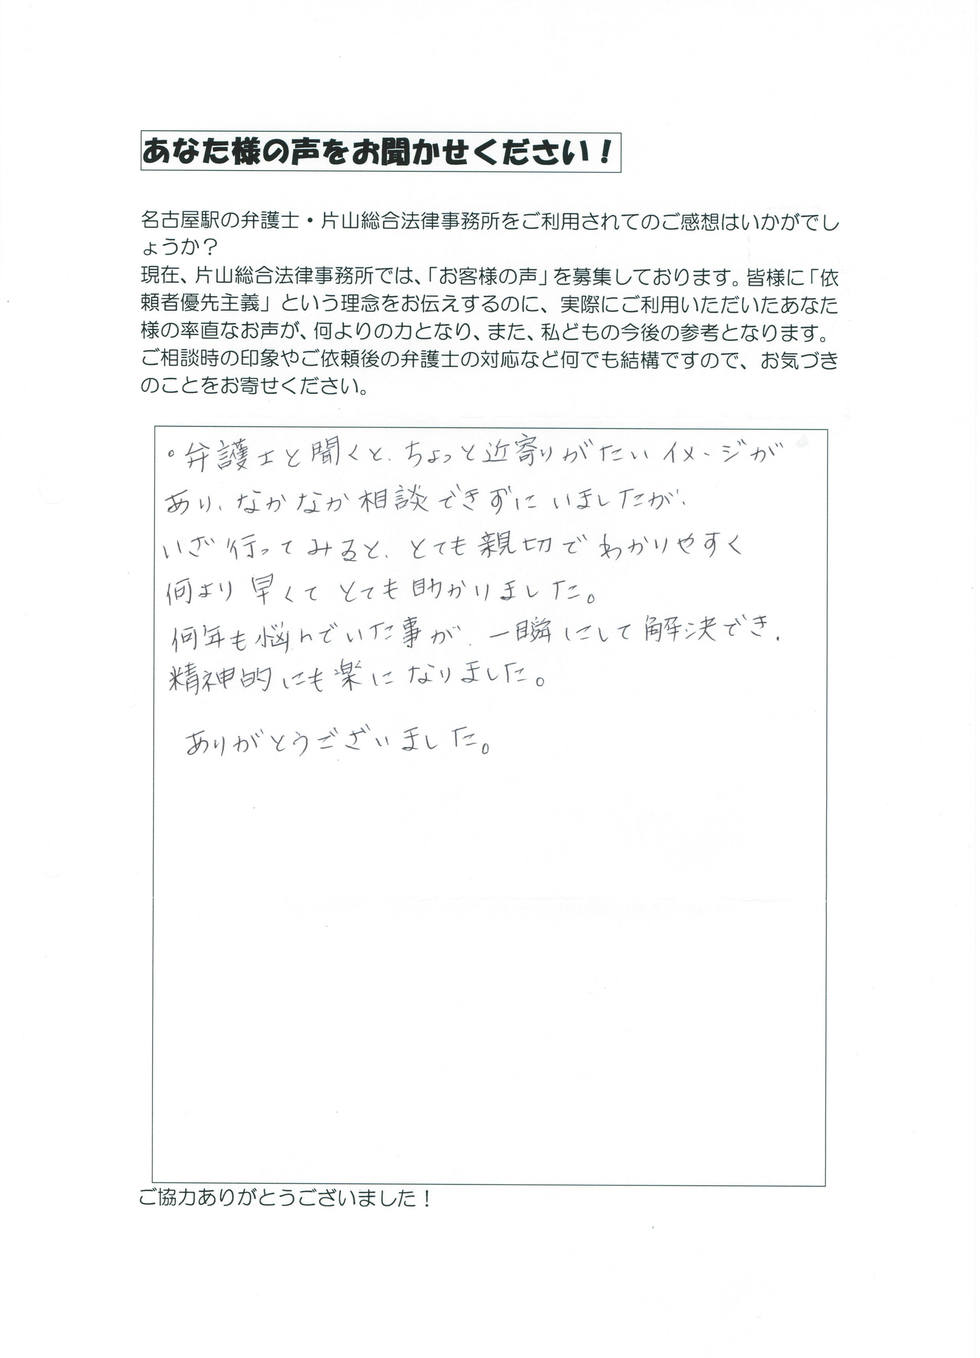 あなた様の声をお聞かせください！
名古屋駅の弁護士・片山総合法律事務所をご利用されてのご感想はいかがでし
ょうか？
現在、片山総合法律事務所では、「お客様の声」を募集しております。皆様に「依
頼者優先主義」という理念をお伝えするのに、実際にご利用いただいたあなた
様の率直なお声が、何よりの力となり、また、私どもの今後の参考となります。
ご相談時の印象やご依頼後の弁護士の対応など何でも結構ですので、お気づき
のことをお寄せください。
。弁護士と聞くと、ちょっと近寄りがたいイメージが
あり、なかなか相談できずにいましたが、
いざ行ってみると、とても親切でわかりやすく
何より早くてとても助かりました。
何年も悩んでいた事が、一瞬にして解決でき、
精神的にも楽になりました。
ありがとうございました。
ご協力ありがとうございました！